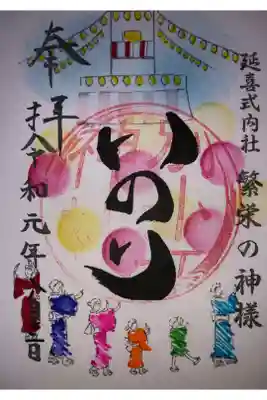 延喜式内社 繁栄の神様
いのり
奉拝
令和元年八月